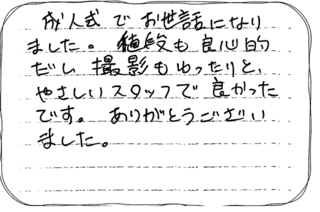 成人式でお世話になり
ました。値段も良心的
だし撮影もゆったりと、
やさしいスタッフで良かった
です。ありがとうござい
ました。